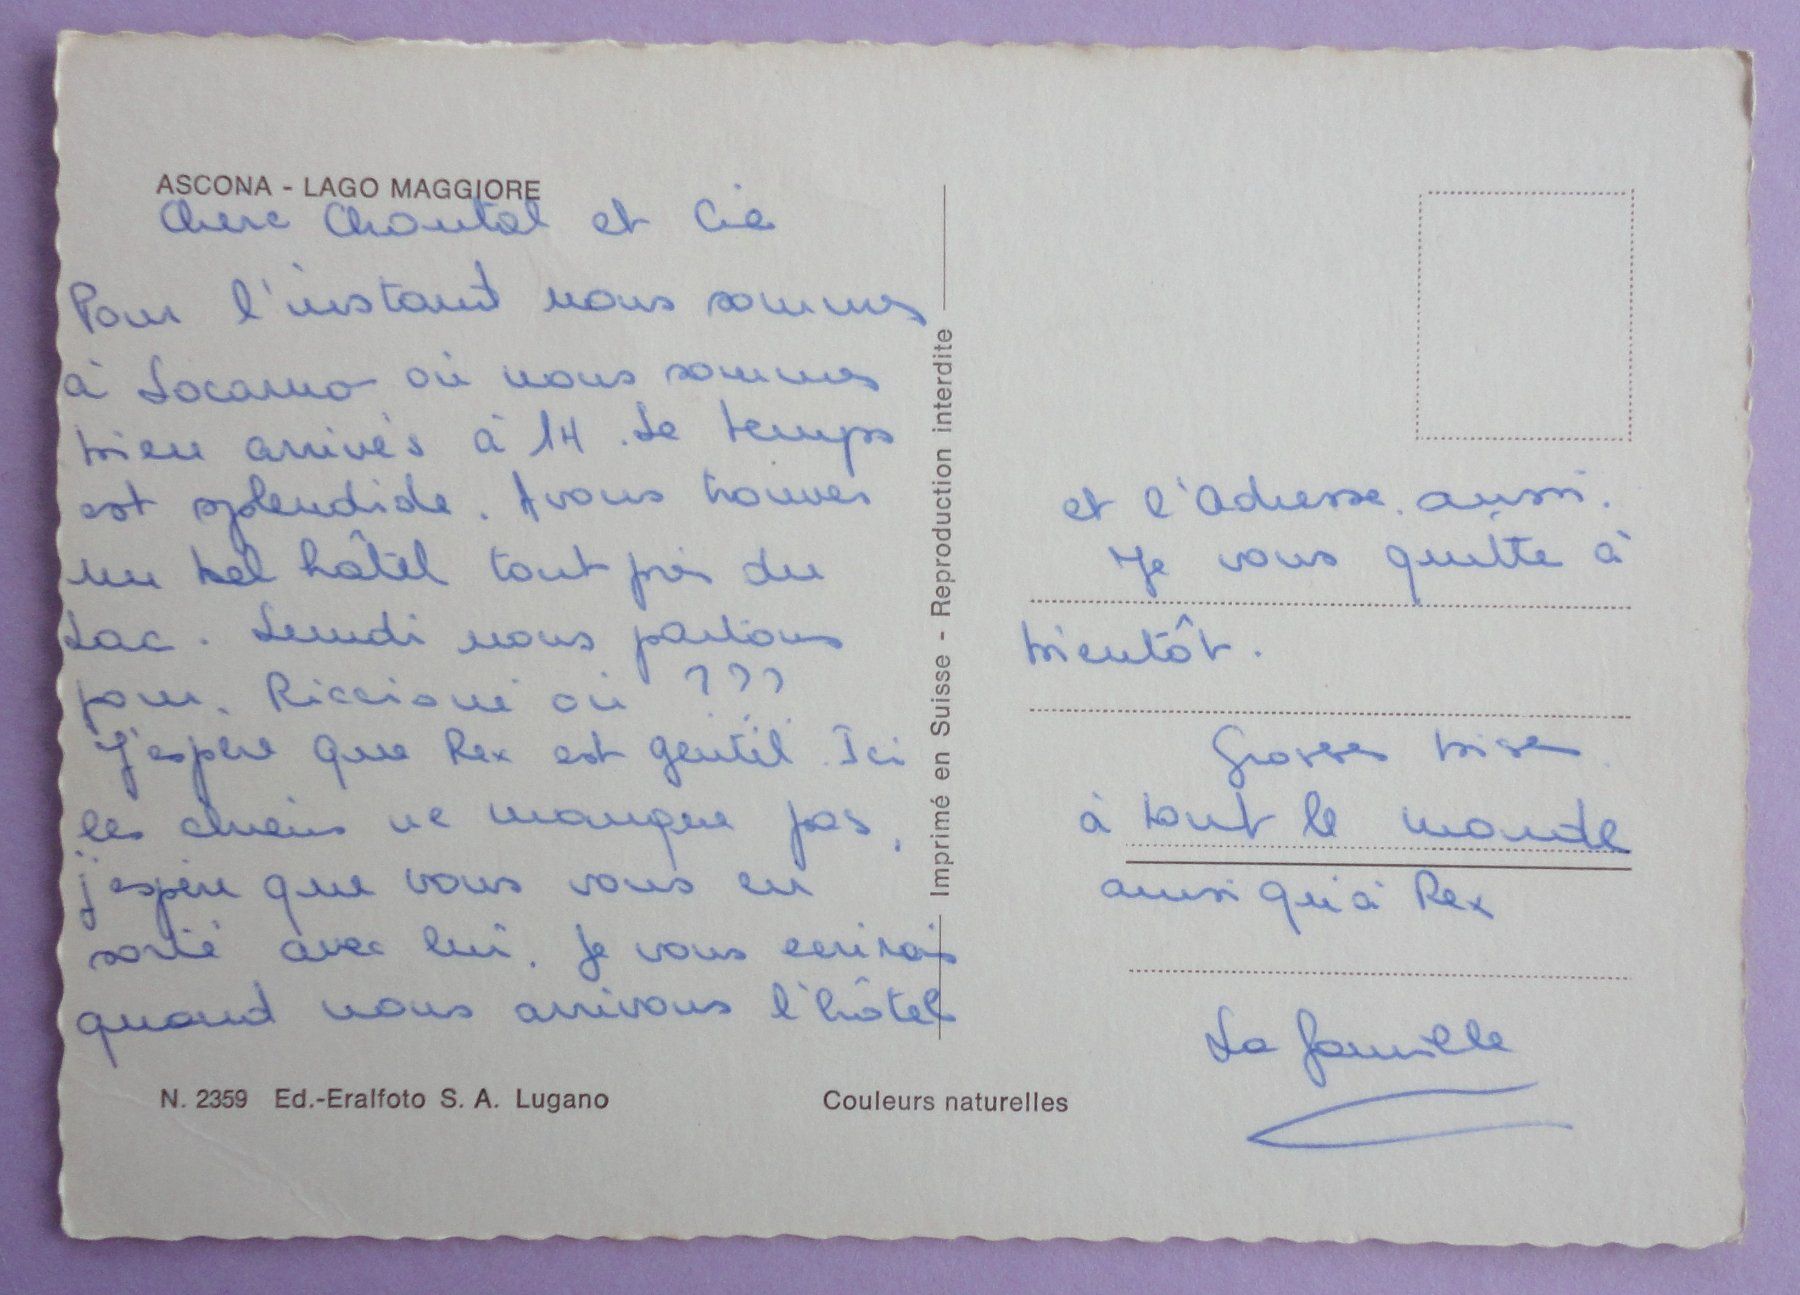 ASCONA - LAGO MAGGIORE
Chere Chantal et Cie
Pour l'instant nous sommes
à Locarno où nous sommes
bien arrivés à 14. Le temps
est splendide. Avons trouver
un bel hôtel tout près du
Lac. Lundi nous partons
pour Riccioni où ???
J'espère que Rex est gentil. Ici
les chiens ne manque pas,
j'espère que vous vous en
sorté avec lui. Je vous ecrirais
quand nous arrivons l'hôtel
N. 2359 Ed.-Eralfoto S. A. Lugano
Couleurs naturelles
Imprimé en Suisse - Reproduction interdite
et l'adresse aussi.
Je vous quitte à
bientôt.
Grosses bises
à tout le monde
ainsi qu'à Rex
La famille